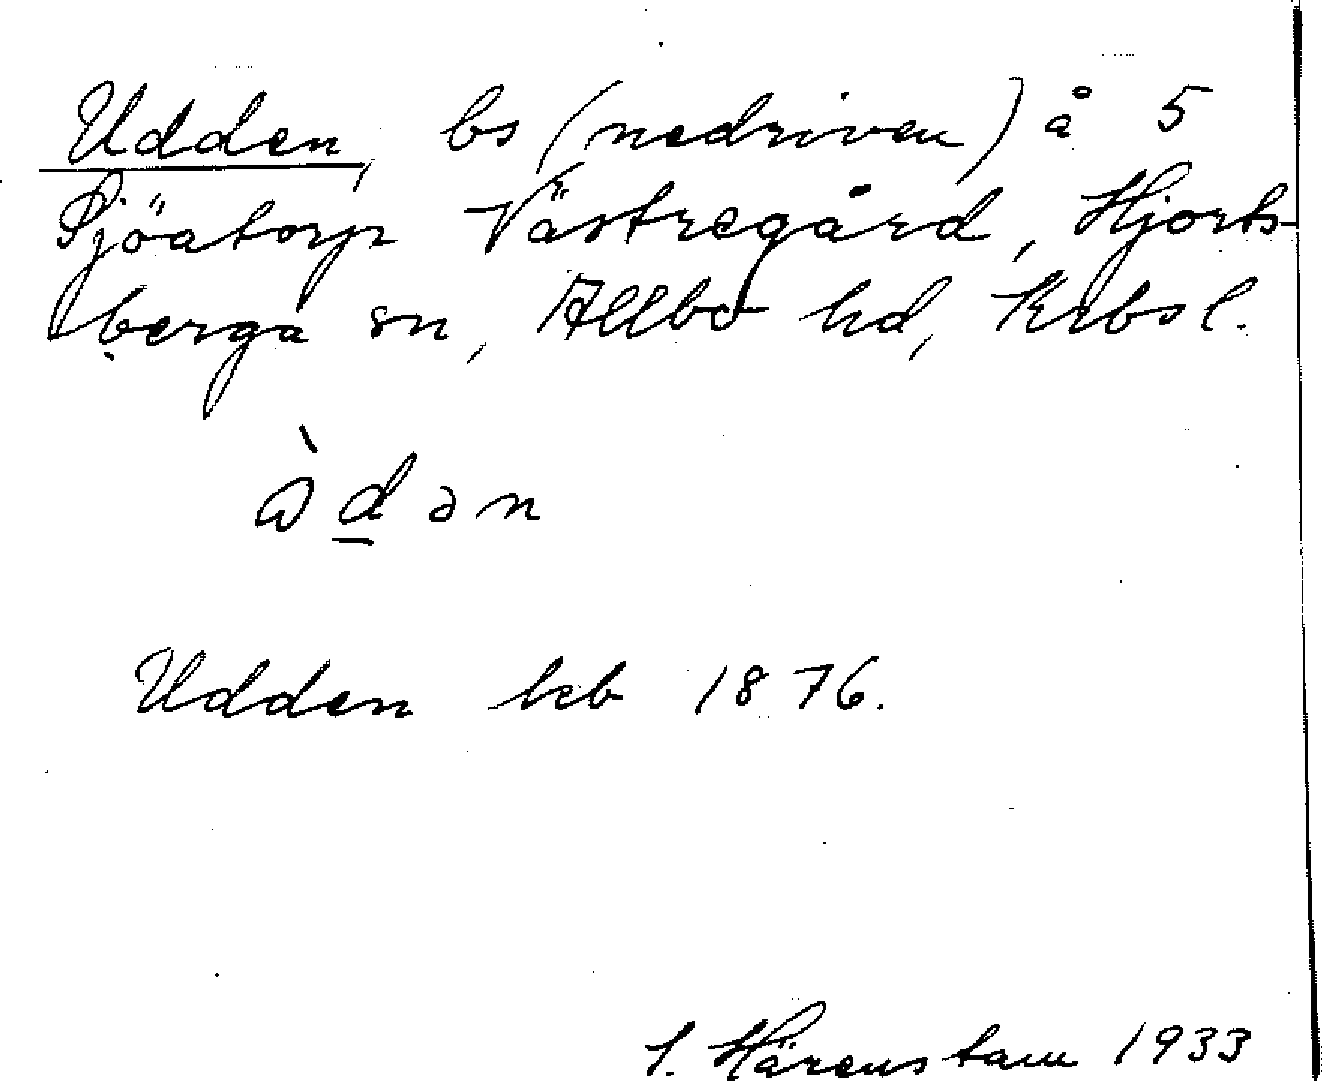 Udden, bs (nedriven) å 5
Sjöatorp Västregård, Hjorts-
berga sn, Allbo hd, Krbsl.
ədən
Udden kb 1876.
Härenstam 1933